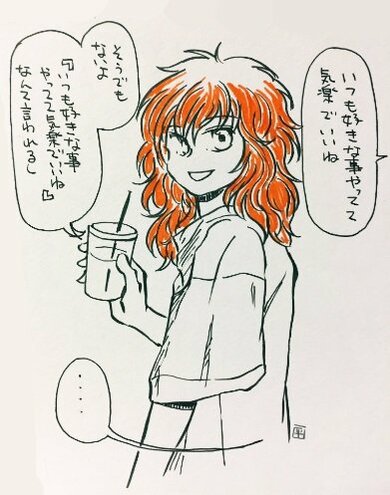 いつも好きな事やってて
気楽でいいね
そうでも
ないよ
『いつも好きな事
やってて気楽でいいね』
なんて言われるし
....